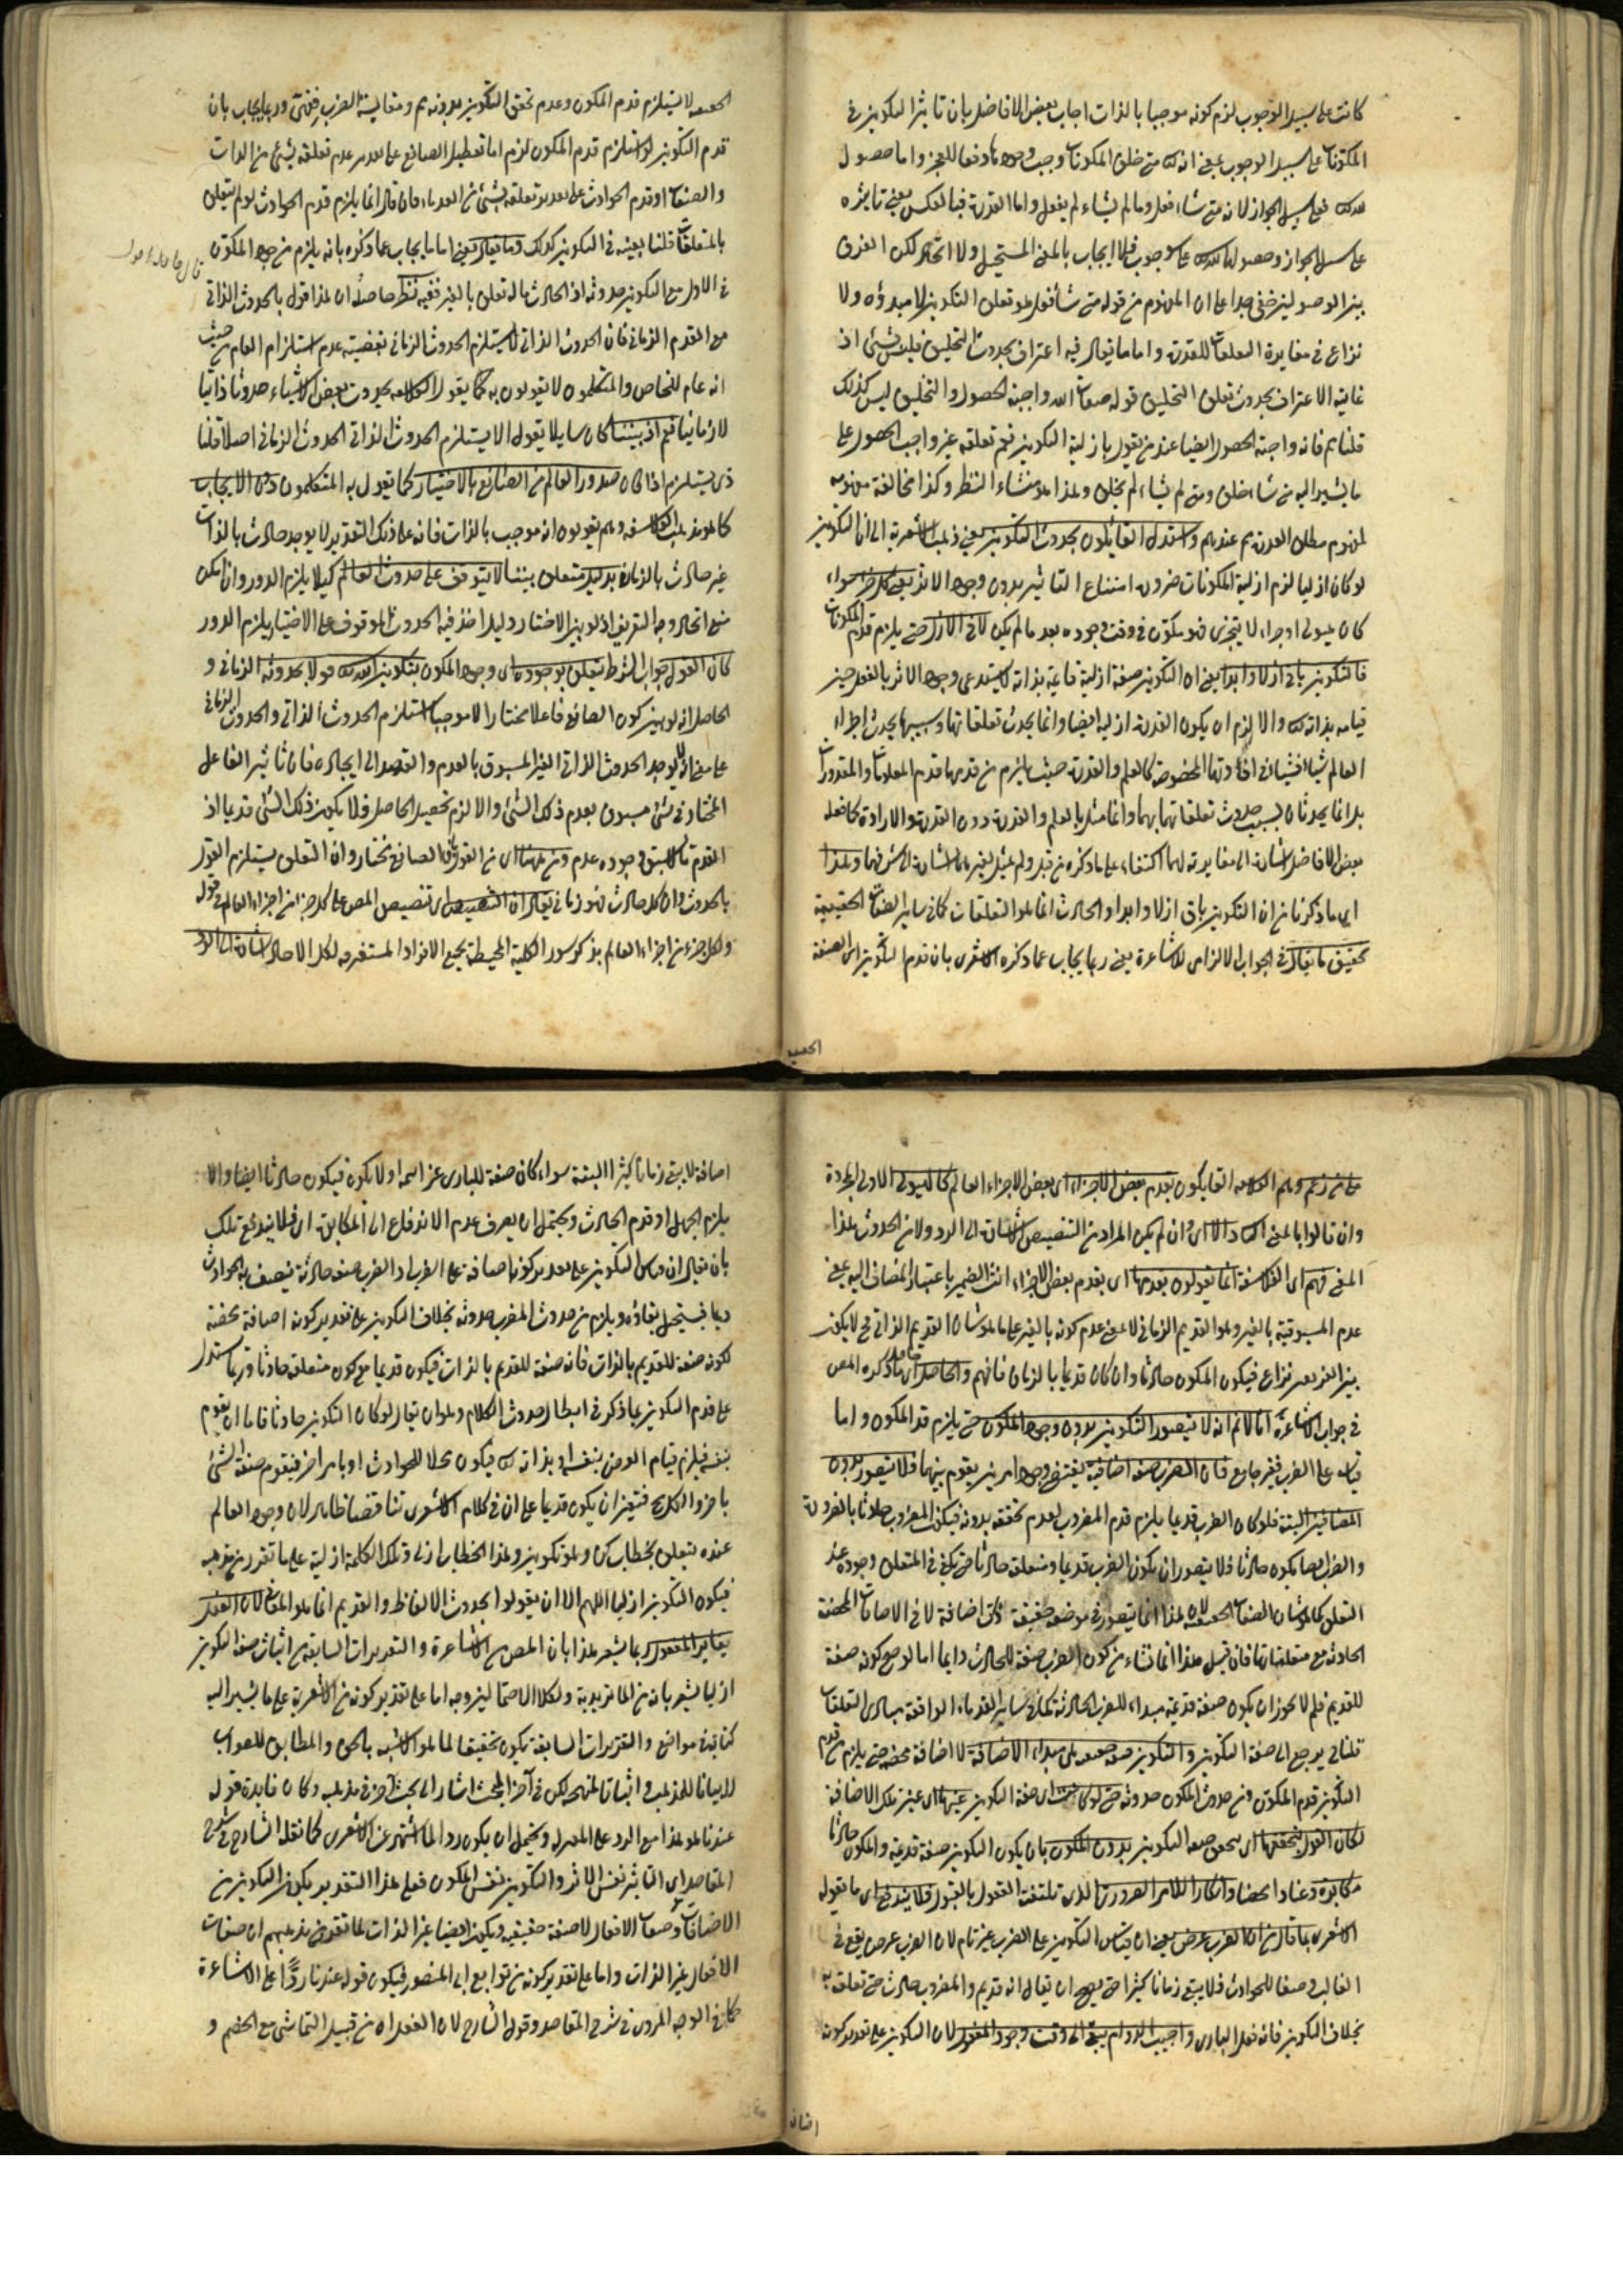 كانت على سبيل الوجوب لزم كونه موجبا بالذات اجاب بعض الافاضل بان تاثير التكوين في
المكونات على سبيل الوجوب بمعنى انه متى خلق المكونات وجب وجودها دفعا للعجز واما حصول
فعلى سبيل الجواز لانه متى شاء فعل وما لم يشاء لم يفعل واما القدرة فبالعكس يعني تاثيره
على سبيل الجواز وحصولها على وجوب فلا ايجاب بالمعنى المستحيل ولا اتحاد لكن الفرق
بين الوصولين خفي جدا على ان المفهوم من قوله متى شاء فعل هو تعلق التكوين لا مبدؤه ولا
نزاع في مغايرة التعلقات للقدرة واما ما يقال فيه اعتراف بحدوث التخليق فليس بشئ اذ
غاية الاعتراف بحدوث تعلق التخليق قوله صفات الله واجبة الحصول والتخليق ليس كذلك
قلنا نعم فانه واجبة الحصول ايضا عند من يقول بازلية التكوين نعم تعلقه غير واجب الحصول على
ما يشير اليه من شاء خلق ومتى لم يشاء لم يخلق وهذا هو منشاء النظر وكذا مخالفة مفهومه
لمفهوم مطلق القدرة عندهم واستدل القائلون بحدوث التكوين يعني ذهب الاشعرية الى ان التكوين
لو كان ازليا لزم ازلية المكونات ضرورة امتناع التاثير بدون وجود الاثر يعني كل جزء سواء
كان هيولى او جزء لا يتجزى فهو مكون في وقت وجوده بعد ما لم يكن لا في الازل حتى يلزم قدم المكونات
فالتكوين باق ازلا وابدا يعني ان التكوين صفة ازلية قائمة بذاته لا يستدعي وجود الاثر بالفعل حين
قيامه بذاته والا لزم ان يكون القدرة ازلية ايضا وانما يحدث تعلقاتها وبسببها يحدث اجزاء
العالم شيئا فشيئا في اوقاتها المخصوصة كالعلم والقدرة حيث لا يلزم من قدمهما قدم المعلومات والمقدورات
بل انما يحدثان بسبب حدوث تعلقاتهما بهما وانما مثل بالعلم والقدرة دون القدرة والارادة كما فعله
بعض الافاضل اشارة الى مغايرته لهما اكتفاء على ما ذكره من قبل ولم يمثل بغيرهما
اي ما ذكرنا من ان التكوين باق ازلا وابدا والحادث انما هو التعلقات كما في ساير الصفات الحقيقية
تحقيق ما يقال في الجواب الالزامي للاشاعرة يعني ربما يجاب عما ذكره الاشعري بان قدم التكوين اي الصفة
الحقيقية
لا يستلزم قدم المكون وعدم تحقق التكوين بدونه ومقايسة الضرب وربما يجاب بان
قدم التكوين لو استلزم قدم المكون لزم اما تعطيل الصانع على تقدير عدم تعلقه بشئ من الذات
والصفات او قدم الحوادث على تقدير تعلقه بشئ من القدماء فان قال انما يلزم قدم الحوادث لو لم يتعلق
بالمتعلقات قلنا بعينه في التكوين كذلك وما يقال يعني اما ما يجاب عما ذكره بانه يلزم من وجود المكون
في الازل مع التكوين حدوثه اذ الحادث ما له تعلق بالغير ففيه نظر حاصله ان هذا قول بالحدوث الذاتي
مع القدم الزماني فان الحدوث الذاتي لا يستلزم الحدوث الزماني بقضية عدم استلزام العام من حيث
انه عام للخاص والمتكلمون لا يقولون به كما يقول الفلاسفة بحدوث بعض الاشياء حدوثا ذاتيا
لا زمانيا نعم اذ بيننا كان سايلا يقول الا يستلزم الحدوث الذاتي الحدوث الزماني اصلا قلنا
يستلزم اذا كان صدور العالم من الصانع بالاختيار كما يقول به المتكلمون دون الايجاب
كما هو مذهب الفلاسفة وهم يقولون انه موجب بالذات فانه على ذلك التقدير لا يوجد حادث بالذات
غير حادث بالزمان بدليل متعلق بيننا لا يتوقف على حدوث العالم كيلا يلزم الدور وان امكن
منع اتحاد وجه التعريف اذ لو بين الاختيار وليس اخذ فيه الحدوث الموقوف على الاختيار يلزم الدور
كان القول جواب الشرط بتعلق وجوده اي وجود المكون بتكوين الله قولا بحدوثه الزماني و
الحاصل انه لو بين كون الصانع فاعلا مختارا لا موجبا استلزم الحدوث الذاتي والحدوث الزماني
على معنى انه لا يوجد الحدوث الذاتي الغير المسبوق بالعدم والقصد الى ايجاده فان تاثير الفاعل
المختار في شئ مسبوق بعدم ذلك الشئ والا لزم تحصيل الحاصل فلا يكون ذلك الشئ قديما اذ
القدم ما لا يسبق وجوده عدم ومن ههنا اي من القول بان الصانع مختار وان التعلق يستلزم القول
بالحدوث وان كل حادث فهو زماني يقال ان التنصيص اي تنصيص المص على كل جزء من اجزاء العالم في قوله
ولكل جزء من اجزاء العالم بذكر سور الكلية المحيطة بجميع الافراد المستغرقه لكل الاحاد اشارة الى الرد
على من زعم وهم الفلاسفة القايلون بقدم بعض الاجزاء اي بعض الاجزاء العالم كالهيولى الاولى المجردة
وان قالوا بالمعنى الا اي وان لم يكن المراد من التنصيص الاشارة الى الرد ولا من الحدوث هذا
المعنى فهم اي الفلاسفة انما يقولون بقدمها اي بقدم بعض الاجزاء انث الضمير باعتبار المضاف اليه يعني
عدم المسبوقية بالغير وهو القديم الزماني لا بمعنى عدم كونه بالغير على ما هو شان القديم الذاتي فح لا يكون
بين الفريقين نزاع فيكون المكون حادثا وان كان قديما بالزمان فافهم والحاصل اي حاصل ما ذكره المص
في جواب الاشاعرة انا لا نم انه لا يتصور التكوين بدون وجود المكون حتى يلزم قدم المكون واما
قياسه على الضرب فبغير جامع فان الضرب صفة اضافية يقتضي وجود امرين يقوم بينهما فلا يتصور بدون
المضافين البتة فلو كان الضرب قديما يلزم قدم المضروب لعدم تحققه بدونه فيكون المضروب حادثا بالضرورة
والضرب ايضا يكون حادثا فلا يتصور ان يكون الضرب قديما ومتعلقه حادثا حتى يكفي في المتعلق وجوده عند
التعلق كما هو شان الصفات الحقيقية لان هذا انما يتصور في موضعه حقيقة ذات اضافة لا في الاضافات المحضة
الحادثة مع متعلقاتها فان قيل هذا انما نشاء من كون الضرب صفة للحادث دايما اما لو صح كونه صفة
للقديم فلم لا يجوز ان يكون صفة قديمة مبداء للضرب الحادثة كما في ساير القدماء الواقعة مبادي التعلقات
قلنا فح يرجع الى صفة التكوين والتكوين صفة حقيقية هي مبداء الاضافة لا اضافة محضة حتى يلزم من قدم
التكوين قدم المكون ومن حدوث المكون حدوثه حتى لو كانت اي صفة التكوين عينها اي عين تلك الاضافة
لكان القول بتحققها اي تحقق صفة التكوين بدون المكون بان يكون التكوين صفة قديمة والمكون حادثا
مكابرة وعنادا محضا وانكارا للامر الضروري الذي تلتفت العقول بالقبول فلا يندفع اي ما يقوله
الاشعري بما قال من ان الضرب عرض يعني ان قياس التكوين على الضرب غير تام لان الضرب عرض يقع في
الغالب وصفا للحوادث فلا يبقى زمانا كثيرا حتى يصح ان يقال انه قديم والمضروب حادث حتى تعلقه به
بخلاف التكوين فانه فعل الباري واجب الدوام يبقى الى وقت وجود المفعول لان التكوين على تقدير كونه
اضافة
اضافة لا يبقى زمانا كثيرا البتة سواء كان صفة للباري عز اسمه او لا يكون فيكون حادثا ايضا والا
يلزم الجهل او قدم الحادث ويحتمل ان يصرف عدم الاندفاع الى المكابرة اي فلا يندفع تلك
بان يقال ان قياس التكوين على تقدير كونه اضافة على الضرب اذ الضرب صفة حادثة يتصف به الحوادث
دايما فيستحيل بقاؤه ويلزم من حدوث المضرب حدوثه بخلاف التكوين على تقدير كونه اضافة محضة
لكونه صفة للقديم بالذات فانه صفة للقديم بالذات فيكون قديما مع كون متعلقه حادثا وربما يستدل
على قدم التكوين بما ذكر في ابطال حدوث الكلام وهو ان يقال لو كان التكوين حادثا فاما ان يقوم
بنفسه فيلزم قيام العرض بنفسه او بذاته فيكون محلا للحوادث او بامر اخر فيقوم صفة الشئ
باخر والكل مح فتعين ان يكون قديما على ان في كلام الاشعري تناقضا ظاهرا لان وجود العالم
عنده يتعلق بخطاب كن وهو تكوين وهذا الخطاب ازلي وتلك الكلمة ازلية على ما تقرر من مذهبه
فيكون التكوين ازليا اللهم الا ان يقولوا بحدوث الالفاظ والقديم انما هو المعاني لان الفعل
يغاير المفعول ربما يشعر هذا بان المص من الاشاعرة والتقريرات السابقة من اثبات صفة التكوين
ازليا يشعر بانه من الماتريدية ولكلا الاحتمالين وجه اما على تقدير كونه من الاشعرية على ما يشير اليه
كتابته في مواضع والتقريرات السابقة يكون تحقيقا لما هو الاشبه بالحق والمطابق للصواب
لا بيانا للمذهب واثباتا لمنهجه لكن في آخر المبحث اشار الى بحث آخر في مذهبه وكان فايدة قوله
عندنا هو هذا مع الرد على المعتزلة ويحتمل ان يكون ردا لما اشتهر عن الاشعري كما نقله الشارح في شرح
المقاصد اي التاثير نفس الاثر والتكوين نفس المكون فعلى هذا التقدير يكون التكوين من
الاضافات وصفات الافعال لا صفة حقيقية ويكون ايضا غير الذات لما تقرر من مذهبهم ان صفات
الافعال غير الذات واما على تقدير كونه من توابع ابي المنصور فيكون قوله عندنا ردا على الاشاعرة
كما في الوجه المردون في شرح المقاصد وقول الشارح لان الفعل اه من قبيل التماشي مع الخصم و